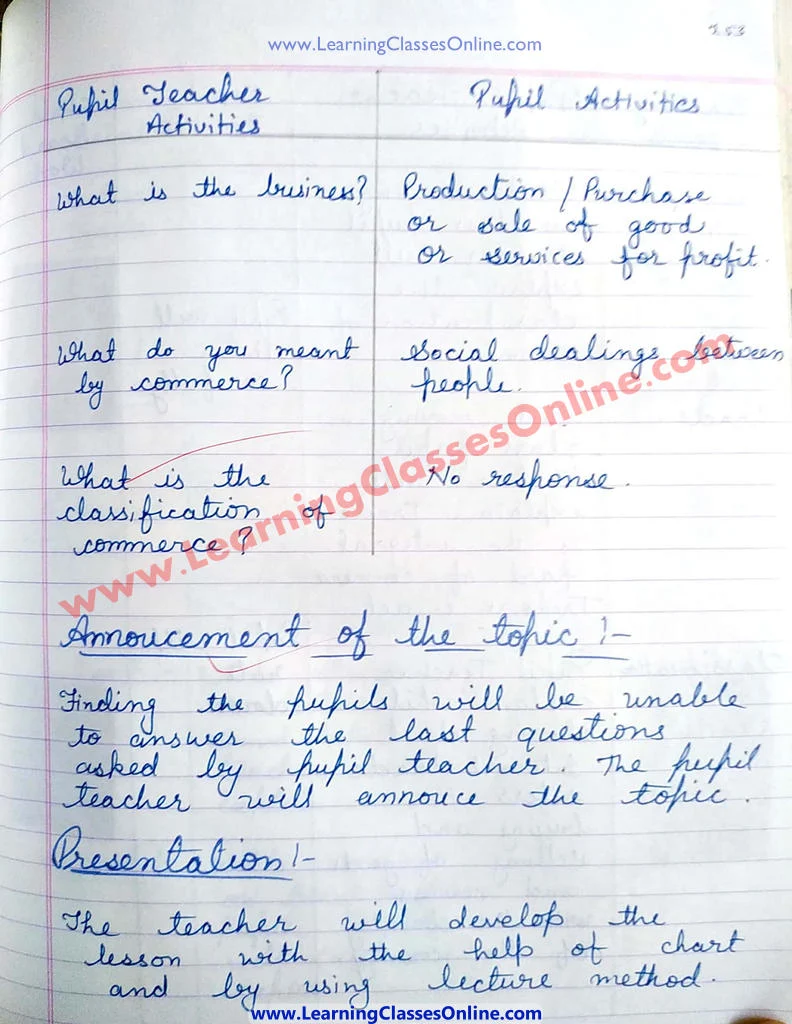 www.LearningClassesOnline.com
253
Pupil Teacher Activities | Pupil Activities
What is the business? | Production / Purchase
or sale of good
or services for profit.
What do you meant | Social dealings between
by commerce? | people.
What is the | No response.
classification of
commerce?
www.LearningClassesOnline.com
Annoucement of the topic !-
Finding the pupils will be unable
to answer the last questions
asked by pupil teacher. The pupil
teacher will annouce the topic.
Presentation !-
The teacher will develop the
lesson with the help of chart
and by using lecture method.
www.LearningClassesOnline.com